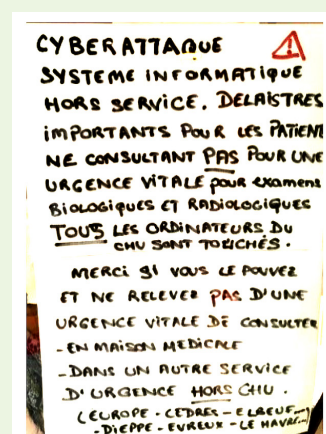 CYBERATTAQUE
SYSTEME INFORMATIQUE
HORS SERVICE. DELAIS TRES
IMPORTANTS POUR LES PATIENT
NE CONSULTANT PAS POUR UNE
URGENCE VITALE pour examens
Biologiques ET RADIOLOGIQUES
TOUS LES ORDINATEURS DU
CHU SONT TOUCHÉS.
MERCI SI VOUS LE POUVEZ
ET NE RELEVEZ PAS D'UNE
URGENCE VITALE DE CONSULTER
- EN MAISON MEDICALE
- DANS UN AUTRE SERVICE
D'URGENCE HORS CHU.
(EUROPE - CEDRES - ELBEUF...)
- DIEPPE - EVREUX - LE HAVRE...)